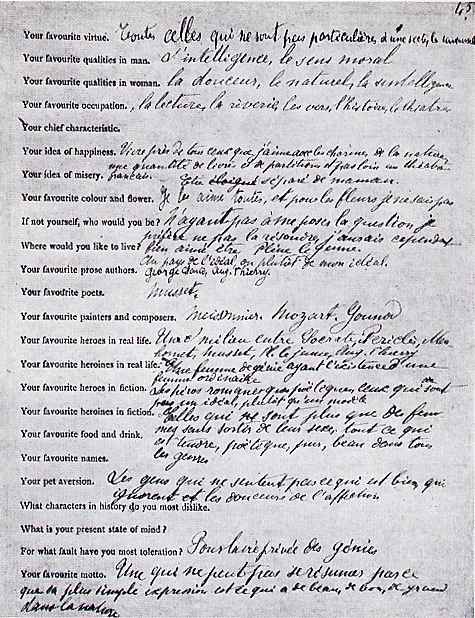 43
Your favourite virtue. Toutes celles qui ne sont pas particulières à une secte, les universelles
Your favourite qualities in man. L'intelligence, le sens moral
Your favourite qualities in woman. La douceur, le naturel, l'intelligence
Your favourite occupation. La lecture, la rêverie, les vers, l'histoire, le théâtre
Your chief characteristic.
Your idea of happiness. Vivre près de tous ceux que j'aime avec les charmes de la nature
une quantité de livres et de partitions, et pas loin un théâtre
français.
Your idea of misery. Etre éloigné séparé de maman.
Your favourite colour and flower. Je les aime toutes, et pour les fleurs, je ne sais pas
If not yourself, who would you be? N'ayant pas à me poser la question, je
préfère ne pas la résoudre, j'aurais cependant
Where would you like to live? bien aimé être Pline le Jeune.
Au pays de l'idéal, ou plutôt de mon idéal.
Your favourite prose authors. George Sand, Aug. Thierry.
Your favourite poets. Musset.
Your favourite painters and composers. Meissonier, Mozart, Gounod
Your favourite heroes in real life. Un milieu entre Socrate, Périclès, Ma
homet, Musset, Pline le Jeune, Aug. Thierry
Your favourite heroines in real life. Une femme de génie ayant l'existence d'une
femme ordinaire
Your favourite heroes in fiction. Les héros romanesques poétiques, ceux qui sont
un idéal plutôt qu'un modèle
Your favourite heroines in fiction. Celles qui ne sont plus que des fem
mes sans sortir de leur sexe, tout ce qui
Your favourite food and drink. est tendre, poétique, pur, beau dans tous
les genres
Your favourite names.
Your pet aversion. Les gens qui ne sentent pas ce qui est bien, qui
ignorent les douceurs de l'affection
What characters in history do you most dislike.
What is your present state of mind?
For what fault have you most toleration? Pour la vie privée des génies
Your favourite motto. Une qui ne peut pas se résumer parce
que sa plus simple expression est ce qui a de beau, de bon, de grand
dans la nature